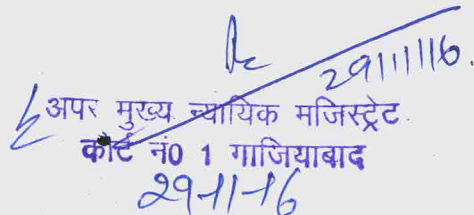 29/11/16.
अपर मुख्य न्यायिक मजिस्ट्रेट.
कोर्ट नं0 1 गाजियाबाद
29-11-16